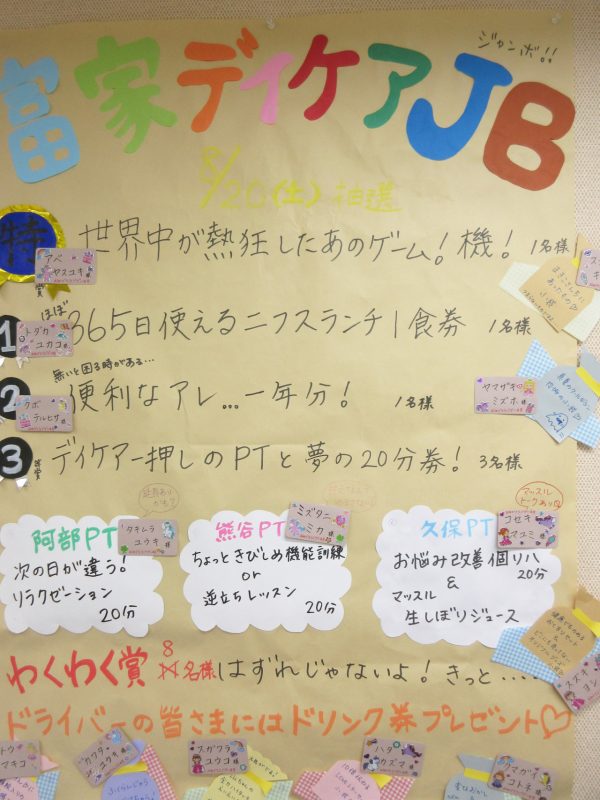 ジャンボ!!
富家デイケアJB
8/20(土)抽選
特賞 世界中が熱狂したあのゲーム!機! 1名様
アベ ヤスユキ 様
ほぼ
1 365日使えるニフスランチ1食券 1名様
トダカ ユカコ 様
無いと困る時がある…
2 便利なアレ…一年分! 1名様
クボ テルヒサ 様
ヤマザキ ミズホ 様
3等賞 デイケア一押しのPTと夢の20分券! 3名様
延長あり かも?
マッスル トークあり
阿部PT
タキムラ ユウキ 様
次の日が違う!
リラクゼーション
20分
熊谷PT
ミズタニ ミカ 様
ちょっときびしめ機能訓練
or
逆立ちレッスン 20分
久保PT
コセキ マユミ 様
お悩み改善個リハ
20分
&
マッスル
生しぼりジュース
わくわく賞 8名様 はずれじゃないよ!きっと……
スズキ ヨシ
ドライバーの皆さまにはドリンク券プレゼント♡
トウ マキコ
スガワラ ユウコ 様
ハタ カズマ 様
コトネ